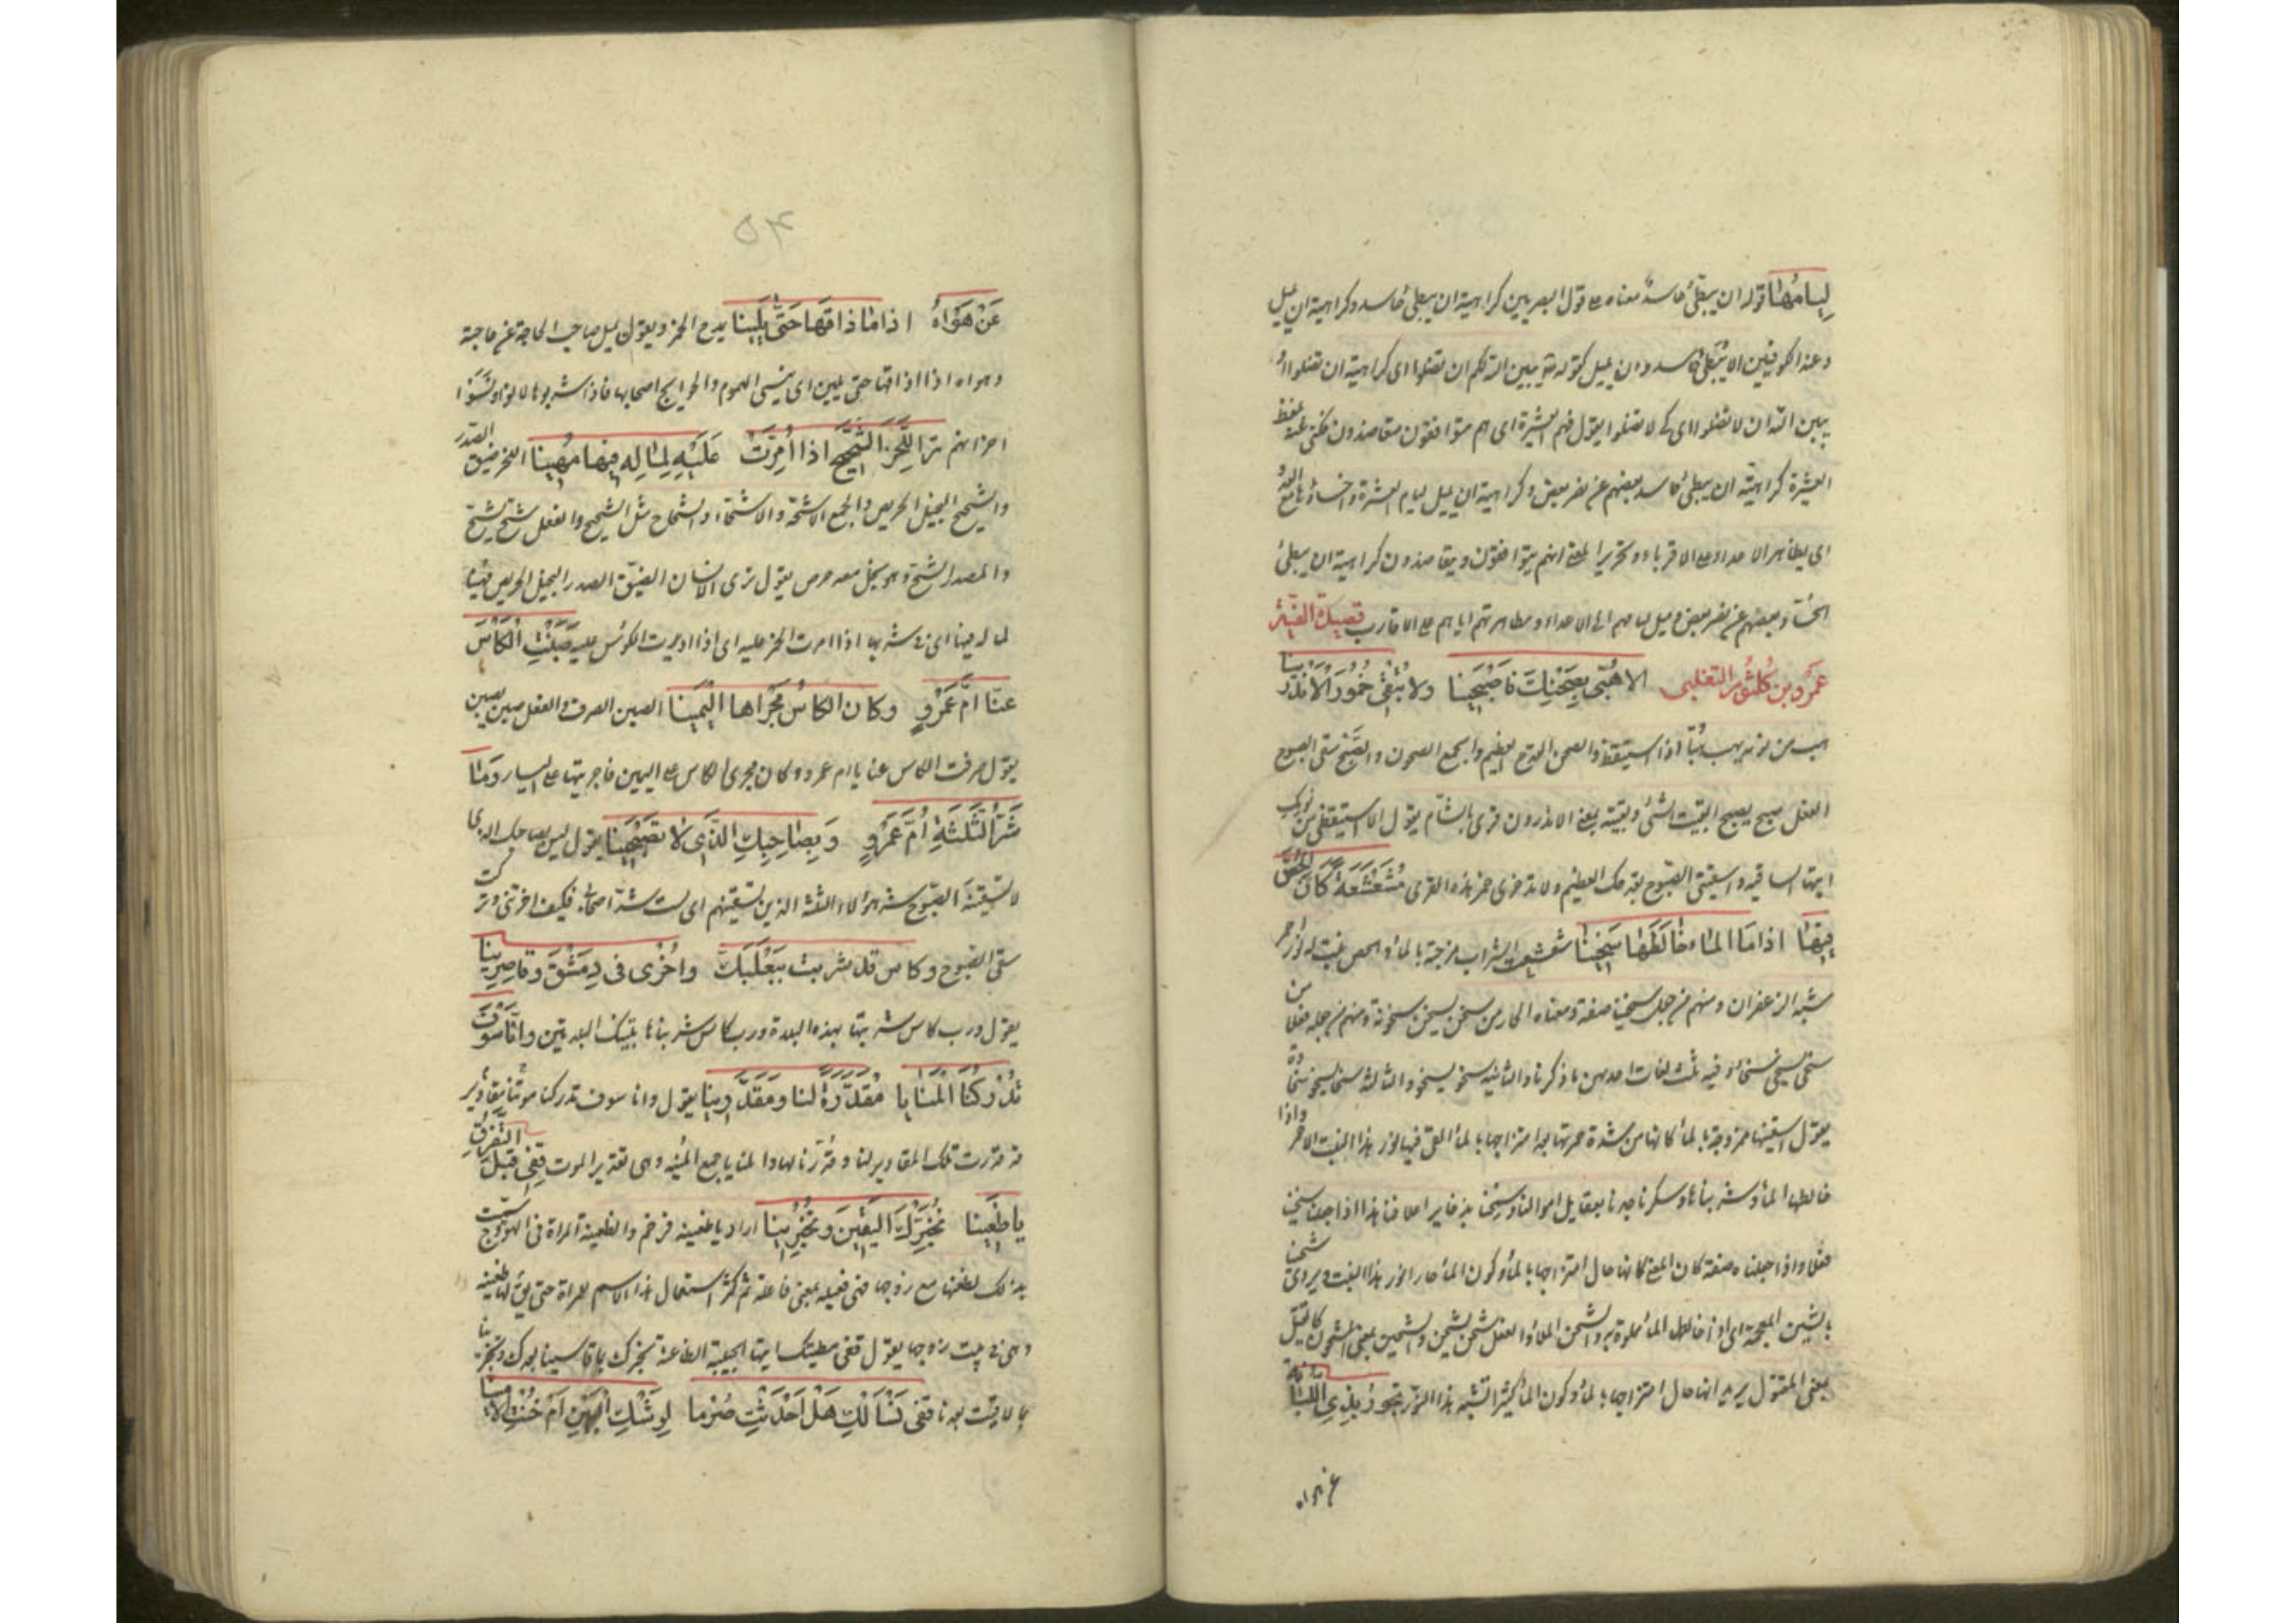 لِيامُها قوله ان يبطئ حاسد معناه على قول البصريين كراهية ان يبطئ حاسد وكراهية ان يميل
وعند الكوفيين ان لا يبطئ حاسد وان يميل كقوله تع يبين الله لكم ان تضلوا اى كراهية ان تضلوا او
يبين الله ان لا تضلوا اى كى لا تضلوا يقول فهم العشيرة اى هم متوافقون متعاضدون فكنى عنه بلفظ
العشيرة كراهية ان يبطئ حاسد بعضهم عن نصر بعض وكراهية ان يميل ليام العشيرة واخساؤها مع العدو
اى يظاهر الاعداء على الاقرباء وتحرير المعنى انهم يتوافقون ويتعاضدون كراهية ان يبطئ
الحساد بعضهم عن نصر بعض وميل ليامهم الى الاعداء ومظاهرتهم اياهم على الاقارب قصيدة
عمرو بن كلثوم التغلبى الا هُبّى بصحنك فاصبحينا ولا تبقى خمور الاندرينا
هب من نومه يهب هبا اذا استيقظ والصحن القدح العظيم والجمع الصحون والصبح سقى الصبوح
الفعل صبح يصبح ابقيت الشئ وبقيته بمعنى الاندرون قرى بالشام يقول الا استيقظى من نومك
ايتها الساقية واسقينى الصبوح بقدحك العظيم ولا تدخرى خمر هذه القرى مُشَعْشَعَةً كأنّ الحُصّ
فيها اذا ما الماء خالطها سخينا شعشعت الشراب مزجته بالماء والحص نبت له نور احمر
يشبه الزعفران ومنهم من جعل سخينا صفة ومعناه الحار من سخن يسخن سخونة ومنهم من جعله فعلا من
سخى يسخى سخاء وفيه ثلث لغات احدهن ما ذكرنا والثانية سخو يسخو والثالثة سخا يسخو سخاوة
يقول اسقينيها ممزوجة بالماء كانها من شدة حمرتها بعد امتزاجها بالماء القى فيها نور هذا النبت الاحمر واذا
خالطها الماء وشربناها وسكرنا جدنا بعقايل اموالنا وسمحنا بذخاير اعلاقنا هذا اذا جعلنا سخينا
فعلا واذا جعلناه صفة كان المعنى كانها حال امتزاجها بالماء وكون الماء حارا نور هذا النبت ويروى شحينا
بالشين المعجمة اى اذا خالطها الماء مملوة به والشحن الملأ والفعل شحن يشحن والشحين بمعنى المشحون كالقتيل
بمعنى المقتول يريد انها حال امتزاجها بالماء وكون الماء كثيرا تشبه هذا النور تجور بذى اللبانة
عن هواه
۵۴
عَنْ هَوَاهُ اذا ما ذاقها حَتّى يَلينا يمدح الخمر ويقول تميل صاحب الحاجة عن حاجته
وهواه اذا ذاقها حتى يلين اى تنسى الهموم والحوايج اصحابها فاذا شربوها لانوا ونسوا
احزانهم ترا اللحز الشحيح اذا أُمِرّت عليه لماله فيها مُهينا اللحز ضيق الصدر
والشحيح البخيل الحريص والجمع الاشحة والاشحاء والشحاح مثل الشحيح والفعل شح يشح
والمصدر الشح وهو بخل معه حرص يقول ترى الانسان الضيق الصدر البخيل الحريص مهينا
لماله فيها اى فى شربها اذا امرت الخمر عليه اى اذا اديرت الكؤس عليه صَبَنْتِ الكأس
عنّا امّ عمروٍ وكان الكاس مجراها اليمينا الصبن الصرف والفعل صبن يصبن
يقول صرفت الكاس عنا يا ام عمرو وكان مجرى الكاس على اليمين فاجريتها على اليسار وما
شرّ الثلثة امّ عمرو وبصاحبك الذى لا تصبحينا يقول ليس بصاحبك الذى
لا تسقينه الصبوح شر هؤلاء الثلثة الذين تسقينهم اى لست شر اصحابى فكيف اخرتنى وتركت
سقى الصبوح وكاس قد شربت ببعلبكّ واخرى فى دمشق وقاصرينا
يقول ورب كاس شربتها بهذه البلدة ورب كاس شربناها بتينك البلدتين وانّا سوف
تدركنا المنايا مقدّرة لنا ومقدّرينا يقول وانا سوف تدركنا موتنا مقادير
قد قدرت تلك المقادير لنا وقدرنا لها والمنايا جمع المنية وهى تقدير الموت قفى قبل التفرّق
يا ظعينا نخبّرك اليقين وتخبرينا اراد يا ظعينة فرخم والظعينة المراة فى الهودج سميت
بذلك لظعنها مع زوجها فهى فعيلة بمعنى فاعلة ثم كثر استعمال هذا الاسم للمراة حتى يق لها ظعينة
وهى فى بيت زوجها يقول قفى مطيتك ايتها الحبيبة الظاعنة نخبرك بما قاسينا بعدك وتخبرينا
بما لاقيت بعدنا قفى نسألك هل احدثت صرما لوشك البين ام خنت الامينا